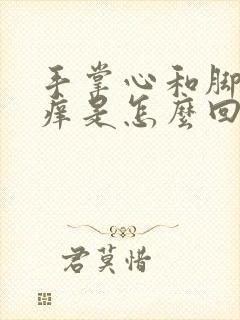 手掌心和脚
痒是怎麼回
君莫惜